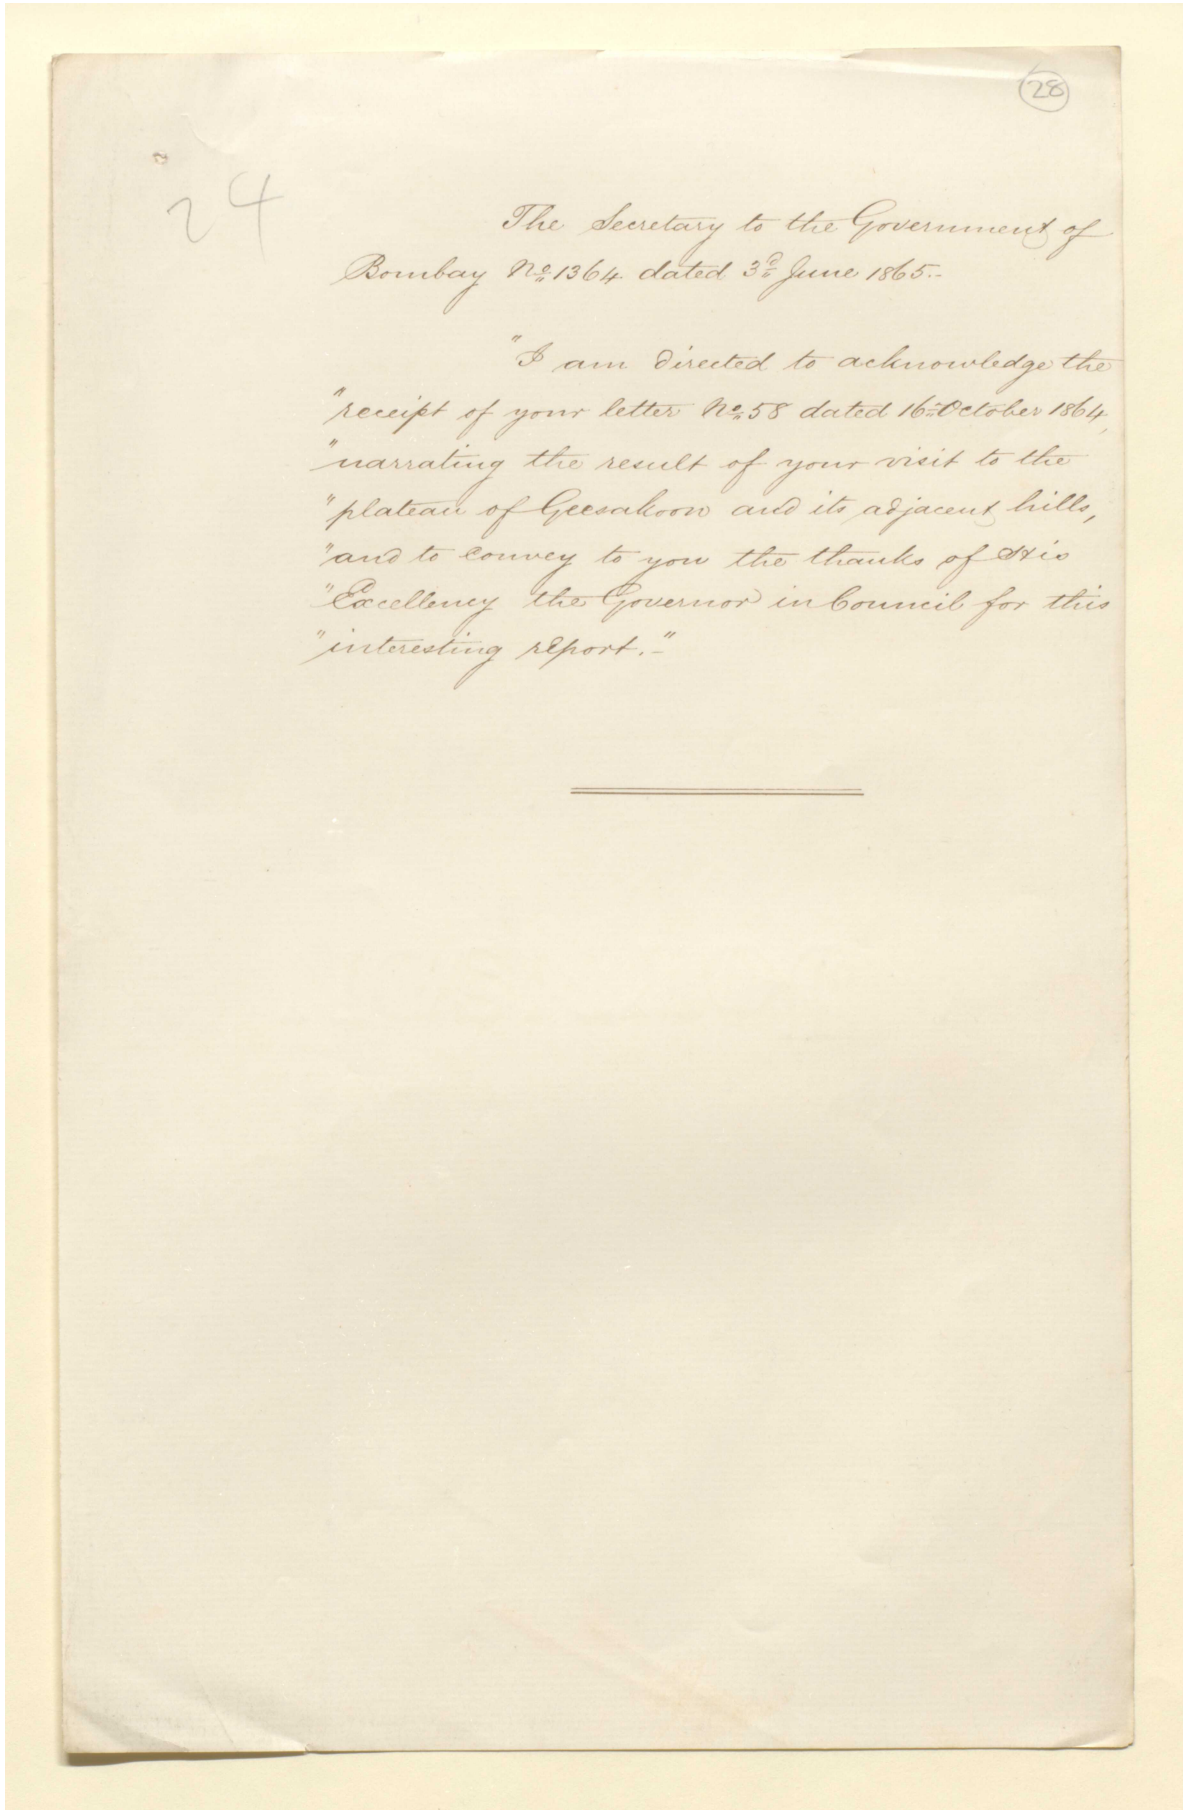 28
24
The Secretary to the Government of
Bombay No. 1364 dated 3d June 1865.-
"I am directed to acknowledge the
"receipt of your letter No. 58 dated 16th October 1864,
"narrating the result of your visit to the
"plateau of Geesakoon and its adjacent hills,
"and to convey to you the thanks of His
"Excellency the Governor in Council for this
"interesting report."-